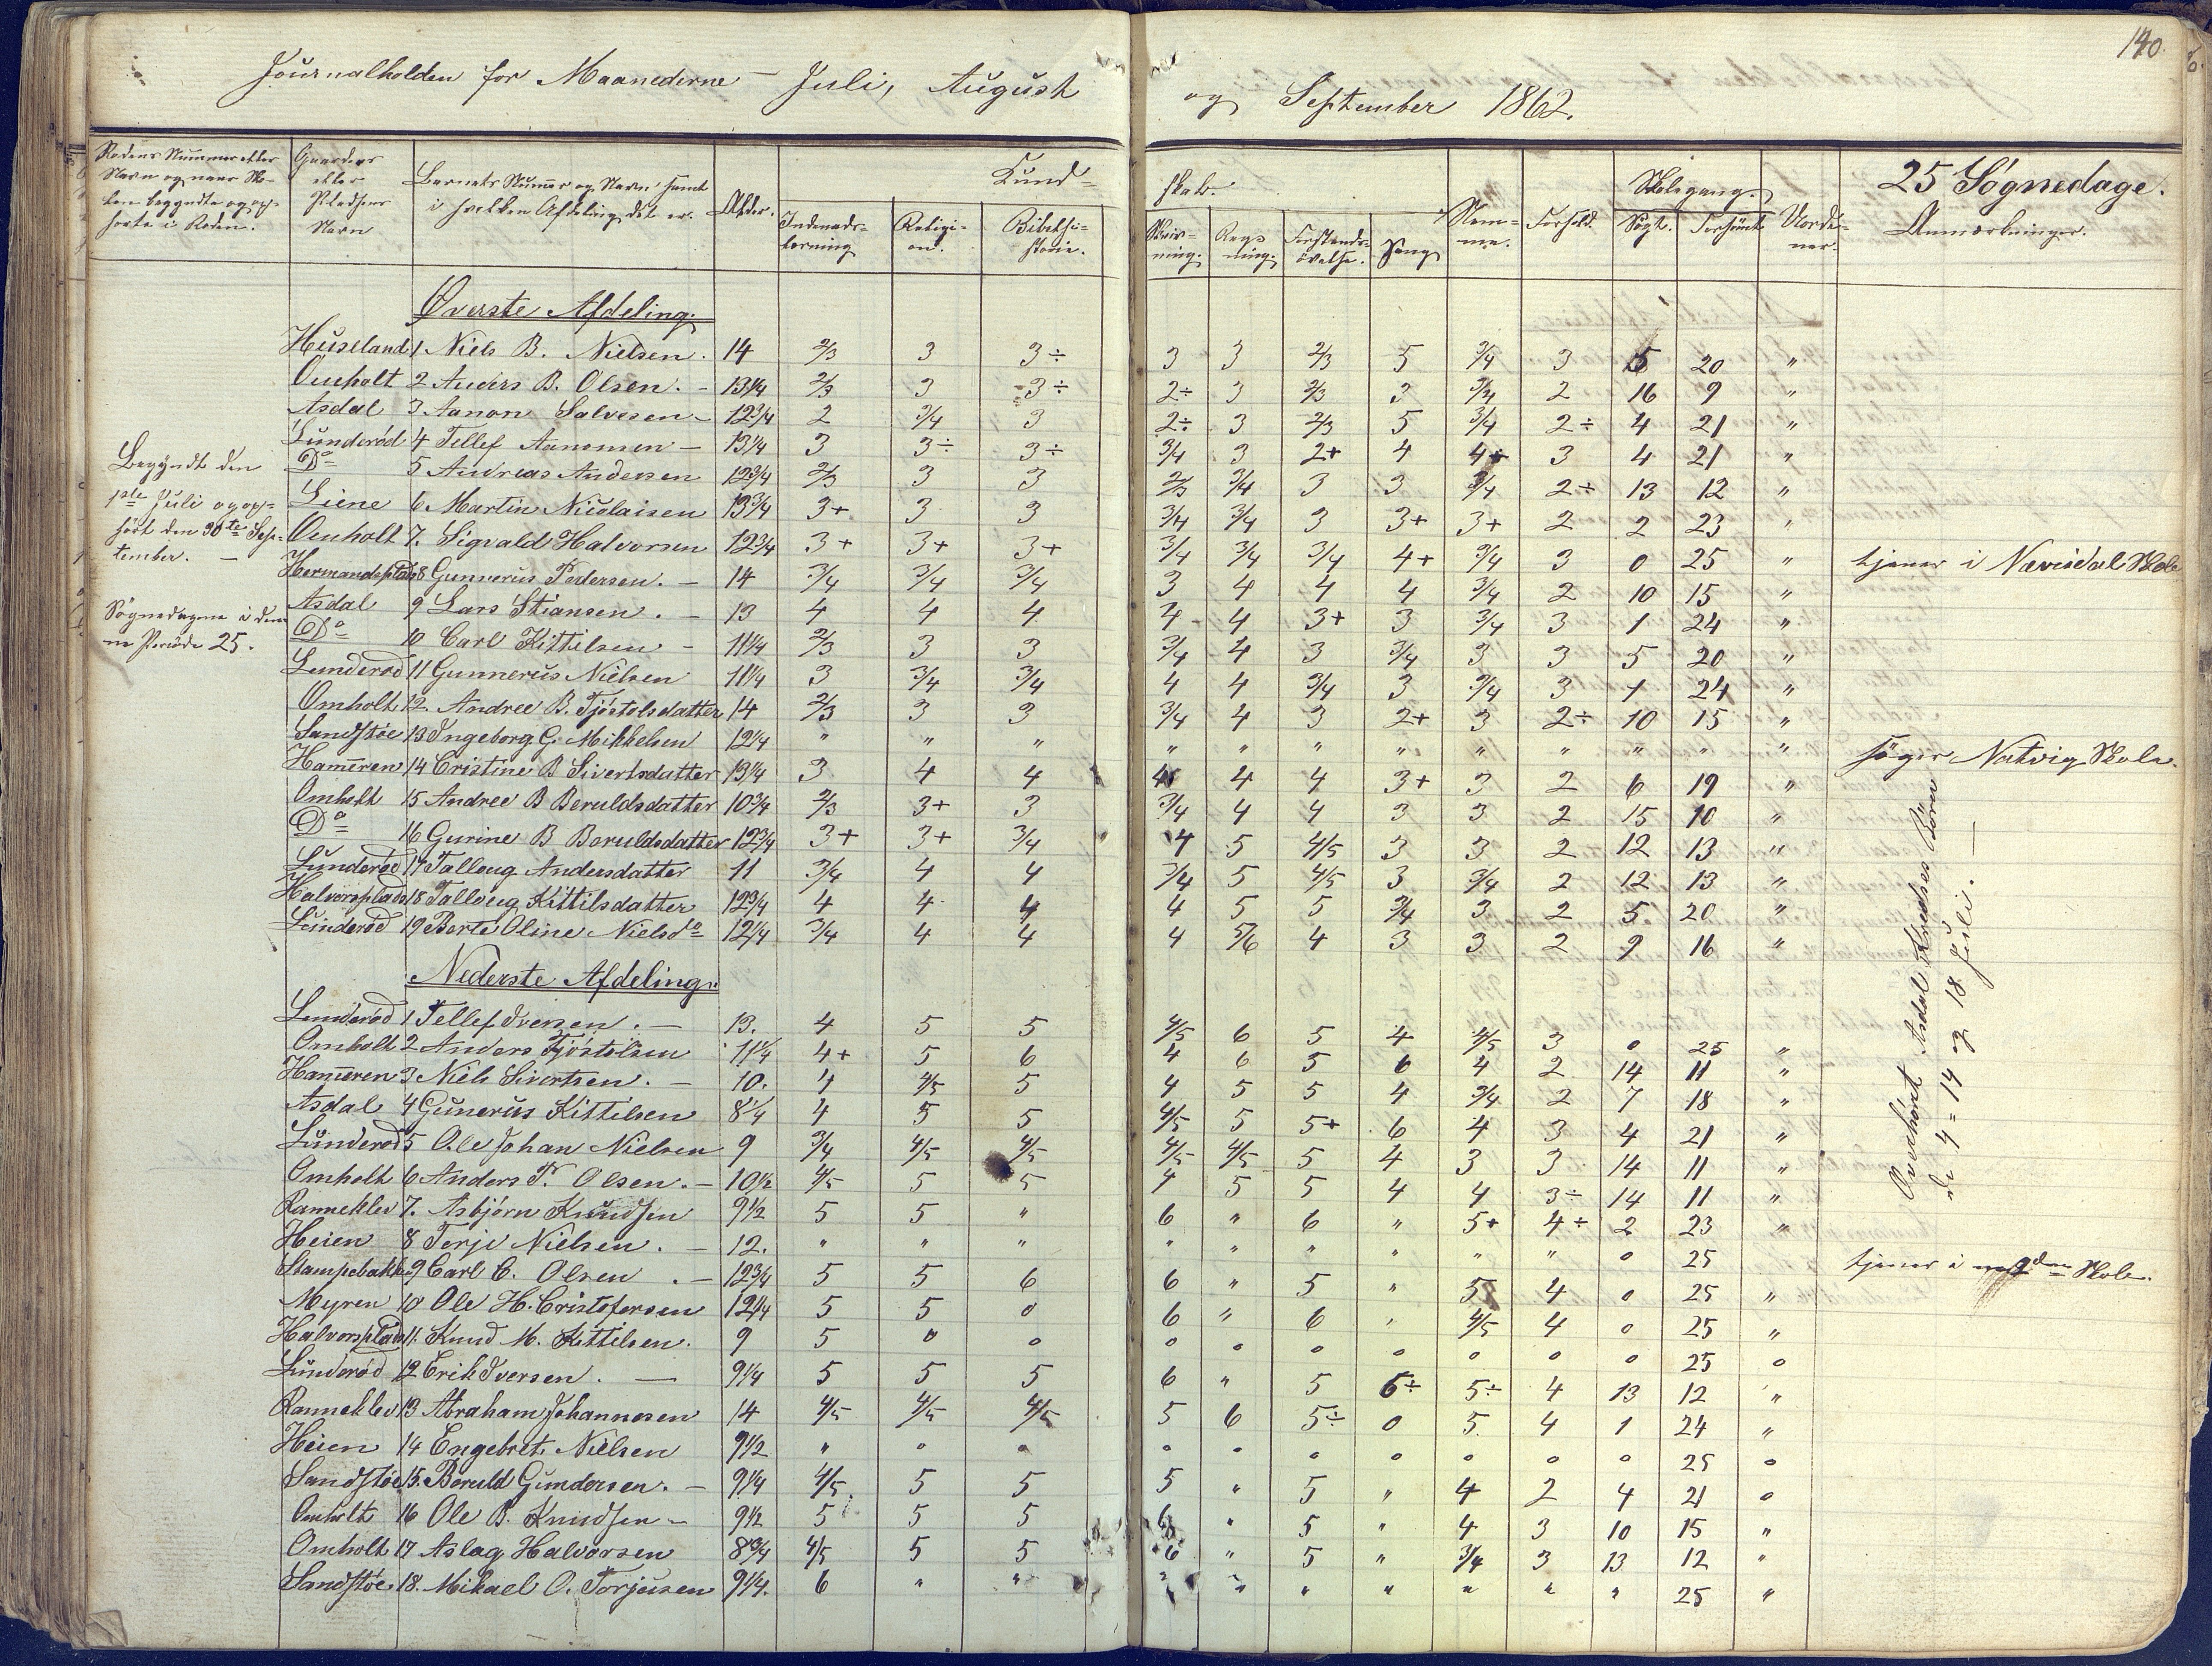 140.
Journalholden for Maanederne - Juli, August og September 1862.
Rodens Nummer eller Navn og naar Skolen begyndte og ophørte i Roden.
Gaardens eller Pladsens Navn
Barnets Nummer og Navn samt i hvilken Afdeling det er.
Alder.
Kundskab.
Indenadslæsning
Religion.
Bibelhistorie.
Skrivning.
Regning.
Forstandsøvelse.
Sang
Nemme.
Forhold.
Skolegang.
Søgt.
Forsømt.
Uordener.
25 Søgnedage.
Anmærkninger.
Øverste Afdeling.
Huseland 1 Niels B. Nielsen. 14 2/3 3 3÷ 3 3 2/3 5 3/4 3 5 20 "
Omholt 2 Anders B. Olsen. - 13 1/4 2/3 3 3÷ 2÷ 3 2/3 3 3/4 2 16 9 "
Asdal 3 Aanon Salvesen - 12 3/4 2 3/4 3 2÷ 3 2/3 5 3/4 2÷ 4 21 "
Lunderød 4 Tellef Aanonsen - 13 1/4 3 3÷ 3÷ 3/4 3 2+ 4 4+ 3 4 21 "
Do 5 Andreas Andersen 12 3/4 2/3 3 3 2/3 3/4 3 3 3/4 2÷ 13 12 "
Liene 6 Martin Nicolaisen 13 3/4 3+ 3 3 3/4 3/4 3 3+ 3+ 2 2 23 "
Omholt 7. Sigvald Halvorsen 12 3/4 3+ 3+ 3+ 3/4 3/4 3/4 4+ 3/4 3 0 25 " tjener i Nævisdal Skole
Hermandsplads 8 Gunnerus Pedersen. - 14 3/4 3/4 3/4 3 4 4 4 3/4 2 10 15 "
Asdal 9 Lars Stiansen. - 13 4 4 4 4 4 3+ 3 3/4 3 1 24 "
Do 10 Carl Kittilsen - 11 1/4 2/3 3 3 3/4 4 3 3/4 3 3 5 20 "
Lunderød 11 Gunnerus Nielsen 11 1/4 3 3/4 3/4 4 4 3/4 3 3/4 3 1 24 "
Omholt 12. Andree B. Tjöstolsdatter 14 2/3 3 3 3/4 4 3 2+ 3 2÷ 10 15 "
Sandstøe 13 Ingeborg G. Mikkelsen 12 1/4 " " " " " " " " " " " " søger Natvig Skole.
Hammeren 14 Cristine B Sivertsdatter 13 1/4 3 4 4 4 4 4 3+ 3 2 6 19 "
Omholt 15 Andree B Beruldsdatter 10 3/4 2/3 3+ 3 3/4 4 4 3 3 2 15 10 "
Do 16 Gurine B Beruldsdatter 12 3/4 3+ 3+ 3/4 4 5 4/5 3 3 2 12 13 "
Lunderød 17 Talloug Andersdatter 11 3/4 4 4 3/4 5 4/5 3 3/4 2 12 13 "
Halvorsplads 18 Talloug Kittilsdatter 12 3/4 4 4 4 4 5 5 3/4 3 2 5 20 "
Lunderød 19 Berte Oline Nielsdo 12 1/4 3/4 4 4 4 5/6 4 3 3 2 9 16 "
Begyndt den 1ste Juli og ophørt den 30te September. -
Søgnedagene i denne Periode 25.
Nederste Afdeling.
Lunderød 1 Tellef Iversen. - 13. 4 5 5 4/5 6 5 4 4/5 3 0 25 "
Omholt 2 Anders Tjöstolsen 11 1/4 4+ 5 6 4 6 5 6 4 2 14 11 "
Hammeren 3 Niels Sivertsen. - 10. 4 4/5 5 4 5 5 4 3/4 2 7 18 "
Asdal 4 Gunerus Kittilsen 8 1/4 4 5 5 4/5 5 5+ 6 4 3 4 21 "
Lunderød 5 Ole Johan Nielsen 9 3/4 4/5 4/5 4/5 4/5 5 4 3 3 14 11 "
Omholt 6 Anders T. Olsen. - 10 1/2 4/5 5 5 4 5 5 4 4 3÷ 14 11 "
Ranneklev 7. Asbjørn Knudsen 9 1/2 5 5 " 6 " 6 " 5+ 4÷ 2 23 "
Heien 8 Terje Nielsen. - 12. " " " " " " " " " 0 25 tjener i Skole.
Stampebakken 9 Carl C. Olsen. - 12 3/4 5 5 6 6 " 5 " 5 4 0 25 "
Myren 10 Ole H. Cristofersen 12 1/4 5 5 0 6 " 6 " 4/5 4 0 25 "
Halvorsplads 11. Knud M. Kittilsen. 9 5 0 0 0 0 0 0 0 0 0 25 0
Lunderød 12 Erik Iversen. - 9 1/4 5 5 5 6 " 5 6÷ 5÷ 4 13 12 "
Ranneklev 13 Abraham Johannesen 14 4/5 4/5 4/5 5 6 5÷ 0 5 4 1 24 "
Heien 14 Engebret Nielsen 9 1/2 " 0 0 0 0 0 0 0 0 0 25 0
Sandstøe 15. Beruld Gundersen. - 9 1/4 4/5 5 5 5 " 5 " 4 2 4 21 0
Omholt 16 Ole B. Knudsen - 9 1/2 5 5 5 6 " 5 " 4 3 10 15 "
Omholt 17 Aslag Halvorsen 8 3/4 4/5 5 5 6 " 5 " 3/4 3 13 12 "
Sandstøe 18. Mikael O. Torjusen 9 1/4. 6 " " " " " " " " " 25 "
Overhørt Asdal Kredses Børn
d. 4= 14 og 18 Juli. -